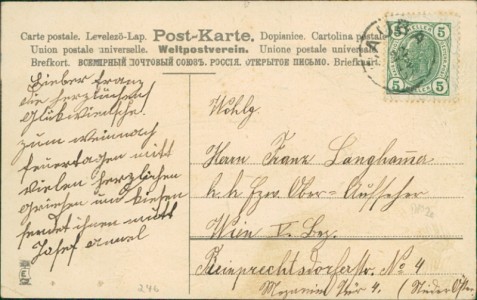 Carte postale. Levelező-Lap. Post-Karte. Dopisnice. Cartolina postale
Union postale universelle. Weltpostverein. Unione postale universale
Brefkort. ВСЕМІРНЫЙ ПОЧТОВЫЙ СОЮЗЪ. РОССІЯ. ОТКРЫТОЕ ПИСЬМО. Briefkaart.
5 5
5 5
Lieber Franz
die herzlichsten
Glükwiensche
zum weinnach
feuertagen mitt
vielen herzlichen
Griesen und kiesen
sendet ihnen
Josef
Wohlg.
Herrn Franz Langhammer
k. k. Ober-Aufseher
Wien V. Bez.
Reinprechtsdorferstr. No 4
Mezanin Tür 4.
246